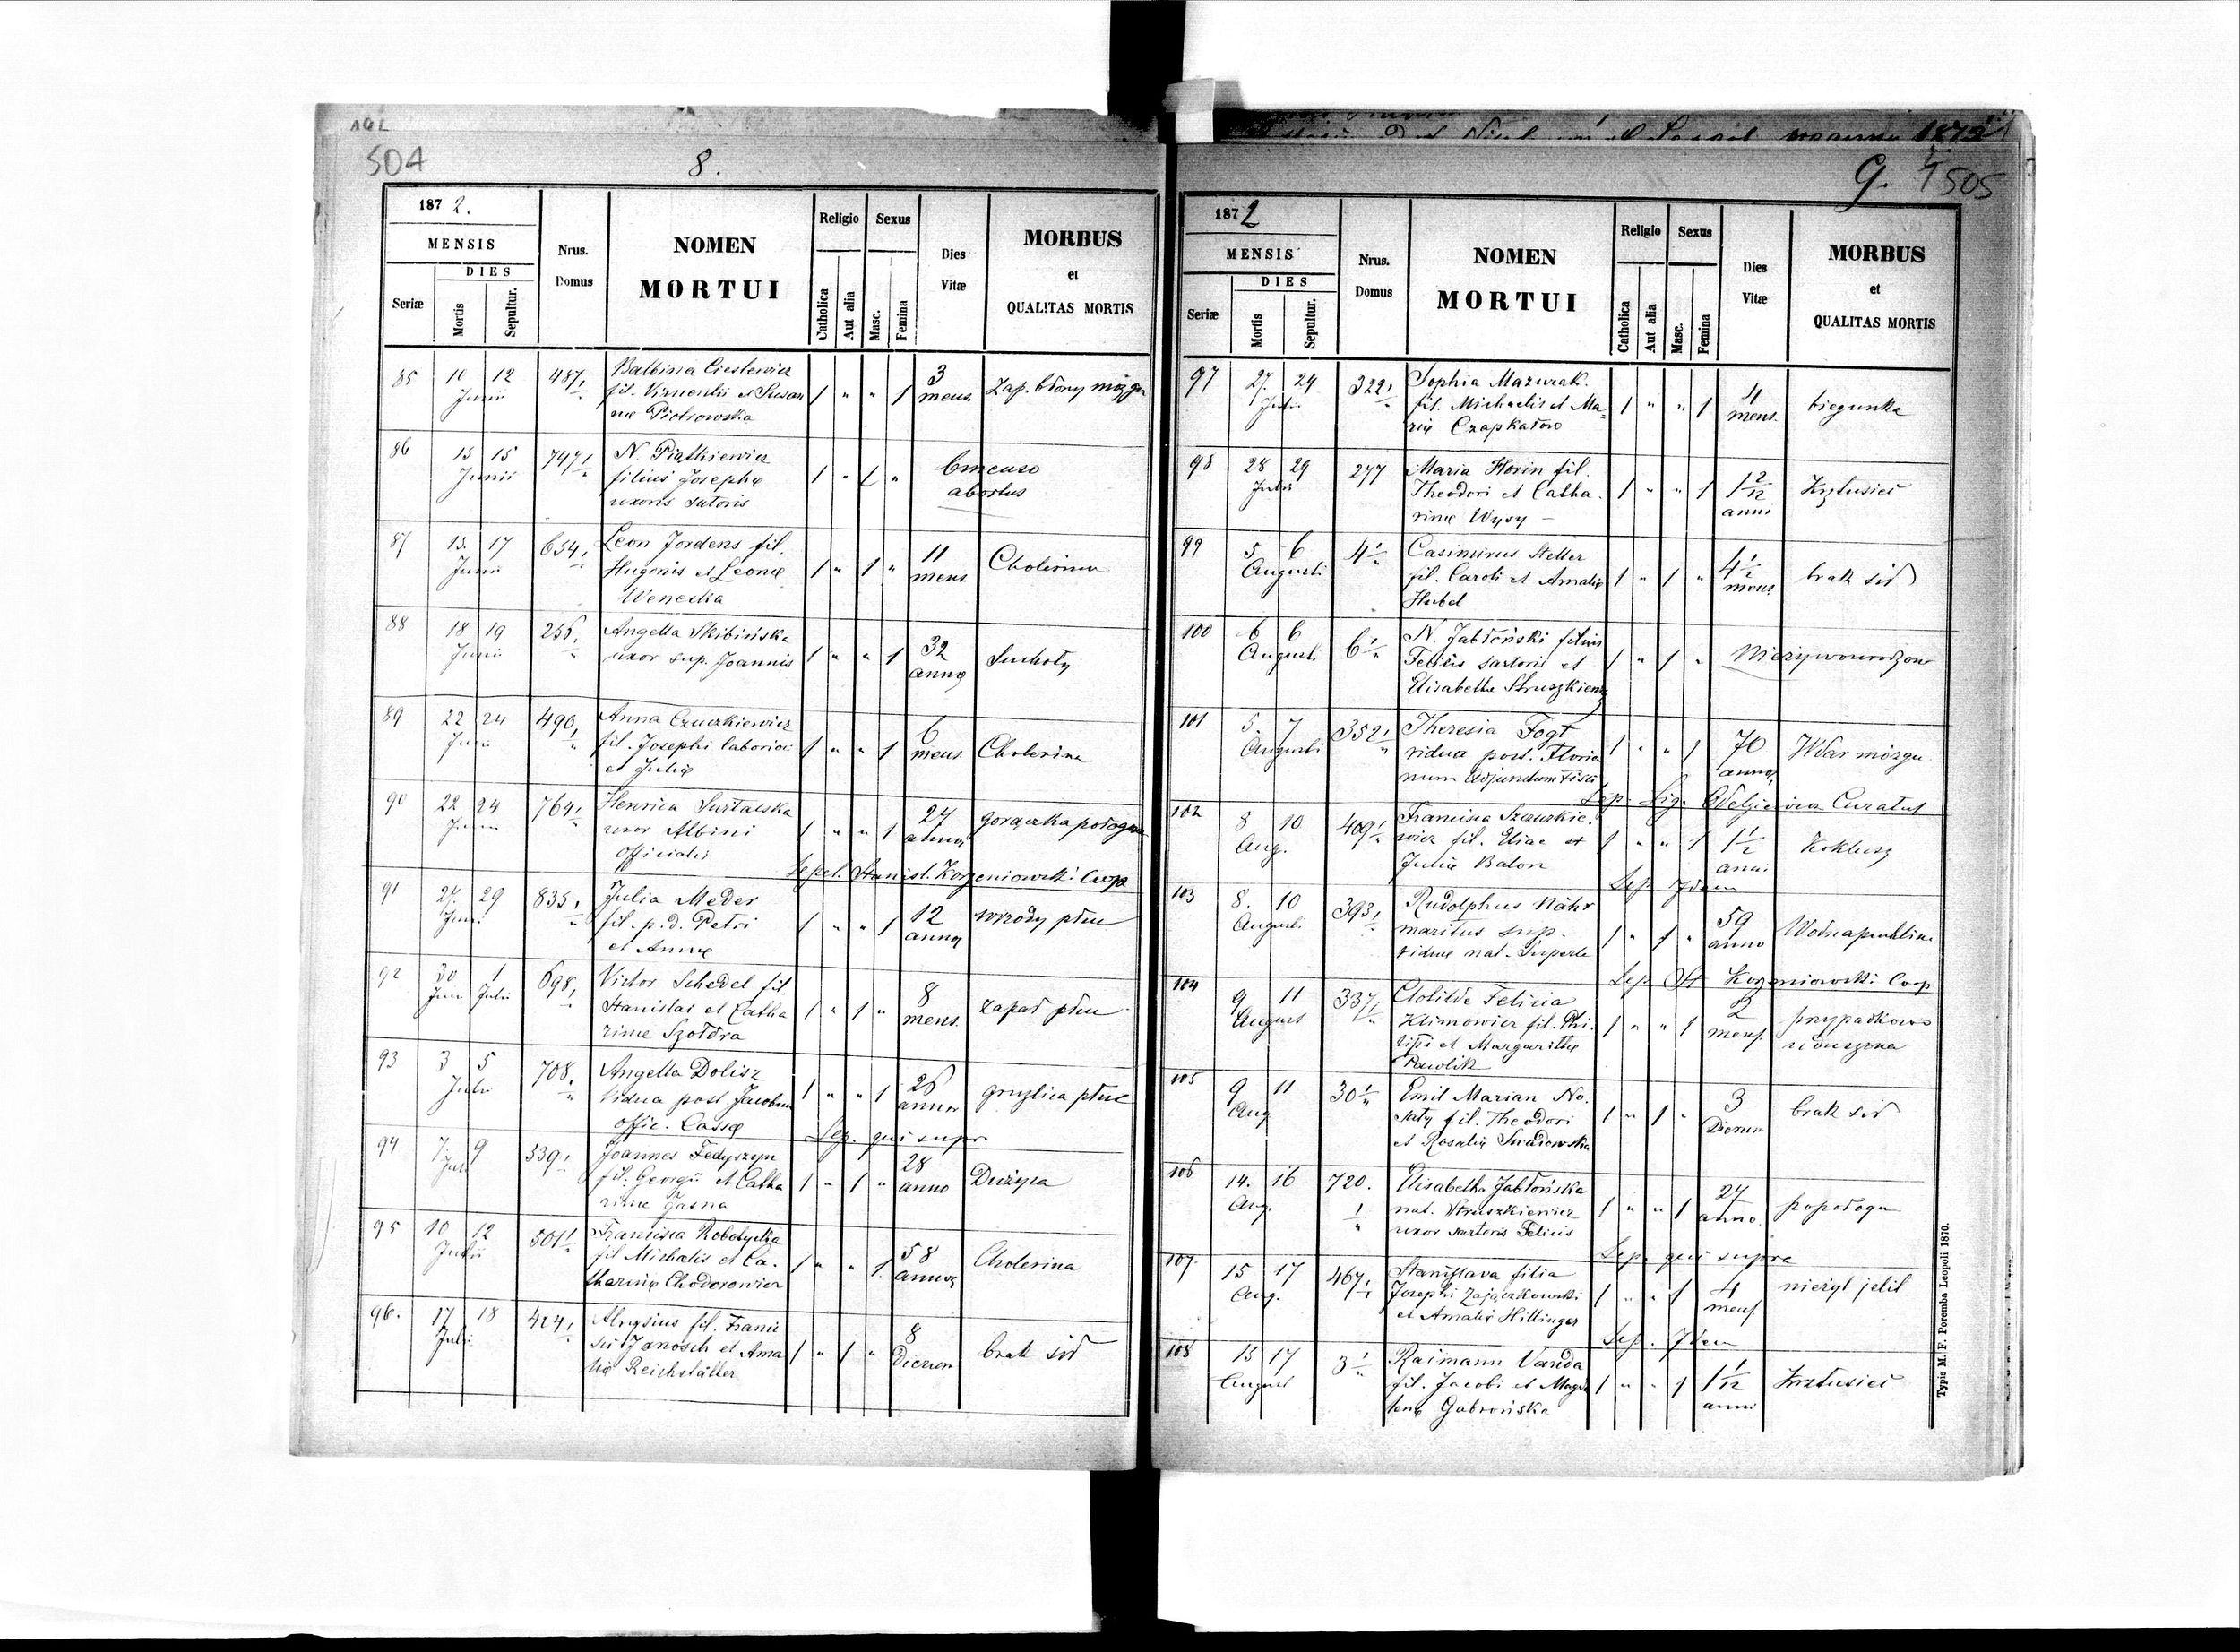 504
8.
187 2.
MENSIS
DIES
Seriæ
Mortis
Sepultur.
Nrus.
Domus
NOMEN
MORTUI
Religio
Catholica
Aut alia
Sexus
Masc.
Femina
Dies
Vitæ
MORBUS
et
QUALITAS MORTIS
85 10 12 Junii 487 Balbina
fil. et Susan
næ Piotrowska
3 mens. Zap. błony mózgu
86 15 15 Junii 747 N. Piątkiewicz
filius Josephæ
uxoris sutoris
abortus
87 15. 17 Junii 654 Leon Jordens fil.
Hugonis et Leonæ
Wenecka
11 mens. Cholerina
88 18 19 Junii 256 Angella Skibińska
uxor sup. Joannis
32 annor Suchoty
89 22 24 Junii 490 Anna Czuczkiewicz
fil. Josephi
et Juliæ
6 mens. Cholerina
90 22 24 Junii 764 Henrica
uxor Albini
officialis
27 annor gorączka połogowa
Sepel. Stanisl. Korzeniowski Coop
91 27. 29 Junii 835 Julia Meder
fil. p. d. Petri
et Annæ
12 annor wrzody płuc
92 30 Junii 1 Julii 698 Victor Schedel fil.
Stanislai et Catha
rinæ Szołdra
8 mens. zapal płuc
93 3 5 Julii 708 Angella Dolisz
vidua post Jacobum
offic. Cassæ
26 annor gruźlica płuc
Sep. qui supr
94 7. 9 Juli 539 Joannes Fedyszyn
fil. Georgii et Catha
rinæ Jasna
28 anno
95 10 12 Julii 501 Francisca Robotycka
fil Michalis et Ca.
tharinæ Chodorowicz
58 annor Cholerina
96. 17 18 Julii 424 Aloysius fil. Franci
sci Janosch et Ama
liæ Reichstätter
8 Dierum brak sił
G. 505
187 2
MENSIS
DIES
Seriæ
Mortis
Sepultur.
Nrus.
Domus
NOMEN
MORTUI
Religio
Catholica
Aut alia
Sexus
Masc.
Femina
Dies
Vitæ
MORBUS
et
QUALITAS MORTIS
97 27. 29 Julii 322 Sophia Mazurak.
fil. Michaelis et Ma=
riæ
4 mens. biegunka
98 28 29 Julii 277 Maria Horin fil.
Theodori et Catha.
rinæ Wysy —
1 2/12 anni Krztusiec
99 5 6 Augusti 4 Casimirus Steller
fil. Caroli et Amaliæ
Hubel
4 1/2 mens. brak sił
100 6 6 Augusti 6 N. Jabłoński filius
Felicis sartoris et
Elisabethæ Struszkiewicz
nieżywourodzone
101 5. 7 Augusti 352 Theresia Fogt
vidua post. Floria
num adjunctum Fisci
70 annor Udar mózgu
Curatus
102 8 10 Aug. 409 Francisca
wicz fil. Eliae et
Juliæ Balon
1 1/2 anni Koklusz
Sep. Idem
103 8. 10 Augusti 393 Rudolphus Nähr
maritus sup.
viduæ nat.
59 anno Wodnapuchlina
Sep St Korzeniowski Coop
104 9 11 August 337 Clotilde Felicia
Klimowicz fil. Phi.
lipi et Margarithæ
Pawlik
2 mens. przypadkowo
uduszona
105 9 11 Aug 30 Emil Marian No.
saty fil. Theodori
et Rosaliæ
3 Dierum brak sił
106 14. 16 Aug. 720. Elisabetha Jabłońska
nat. Struszkiewicz
uxor sartoris Felicis
27 anno. po połogu
Sep. qui supra
107. 15 17 Aug. 467 Stanislava filia
Josephi Zajączkowski
et Amaliæ Hillinger
4 mens. nieżyt jelit
Sep. Idem
108 15 17 August 3 Raimann Vanda
fil. Jacobi et Magda
lenæ Gabrońska
1 1/12 anni Krztusiec
Typis M. F. Poremba Leopoli 1870.